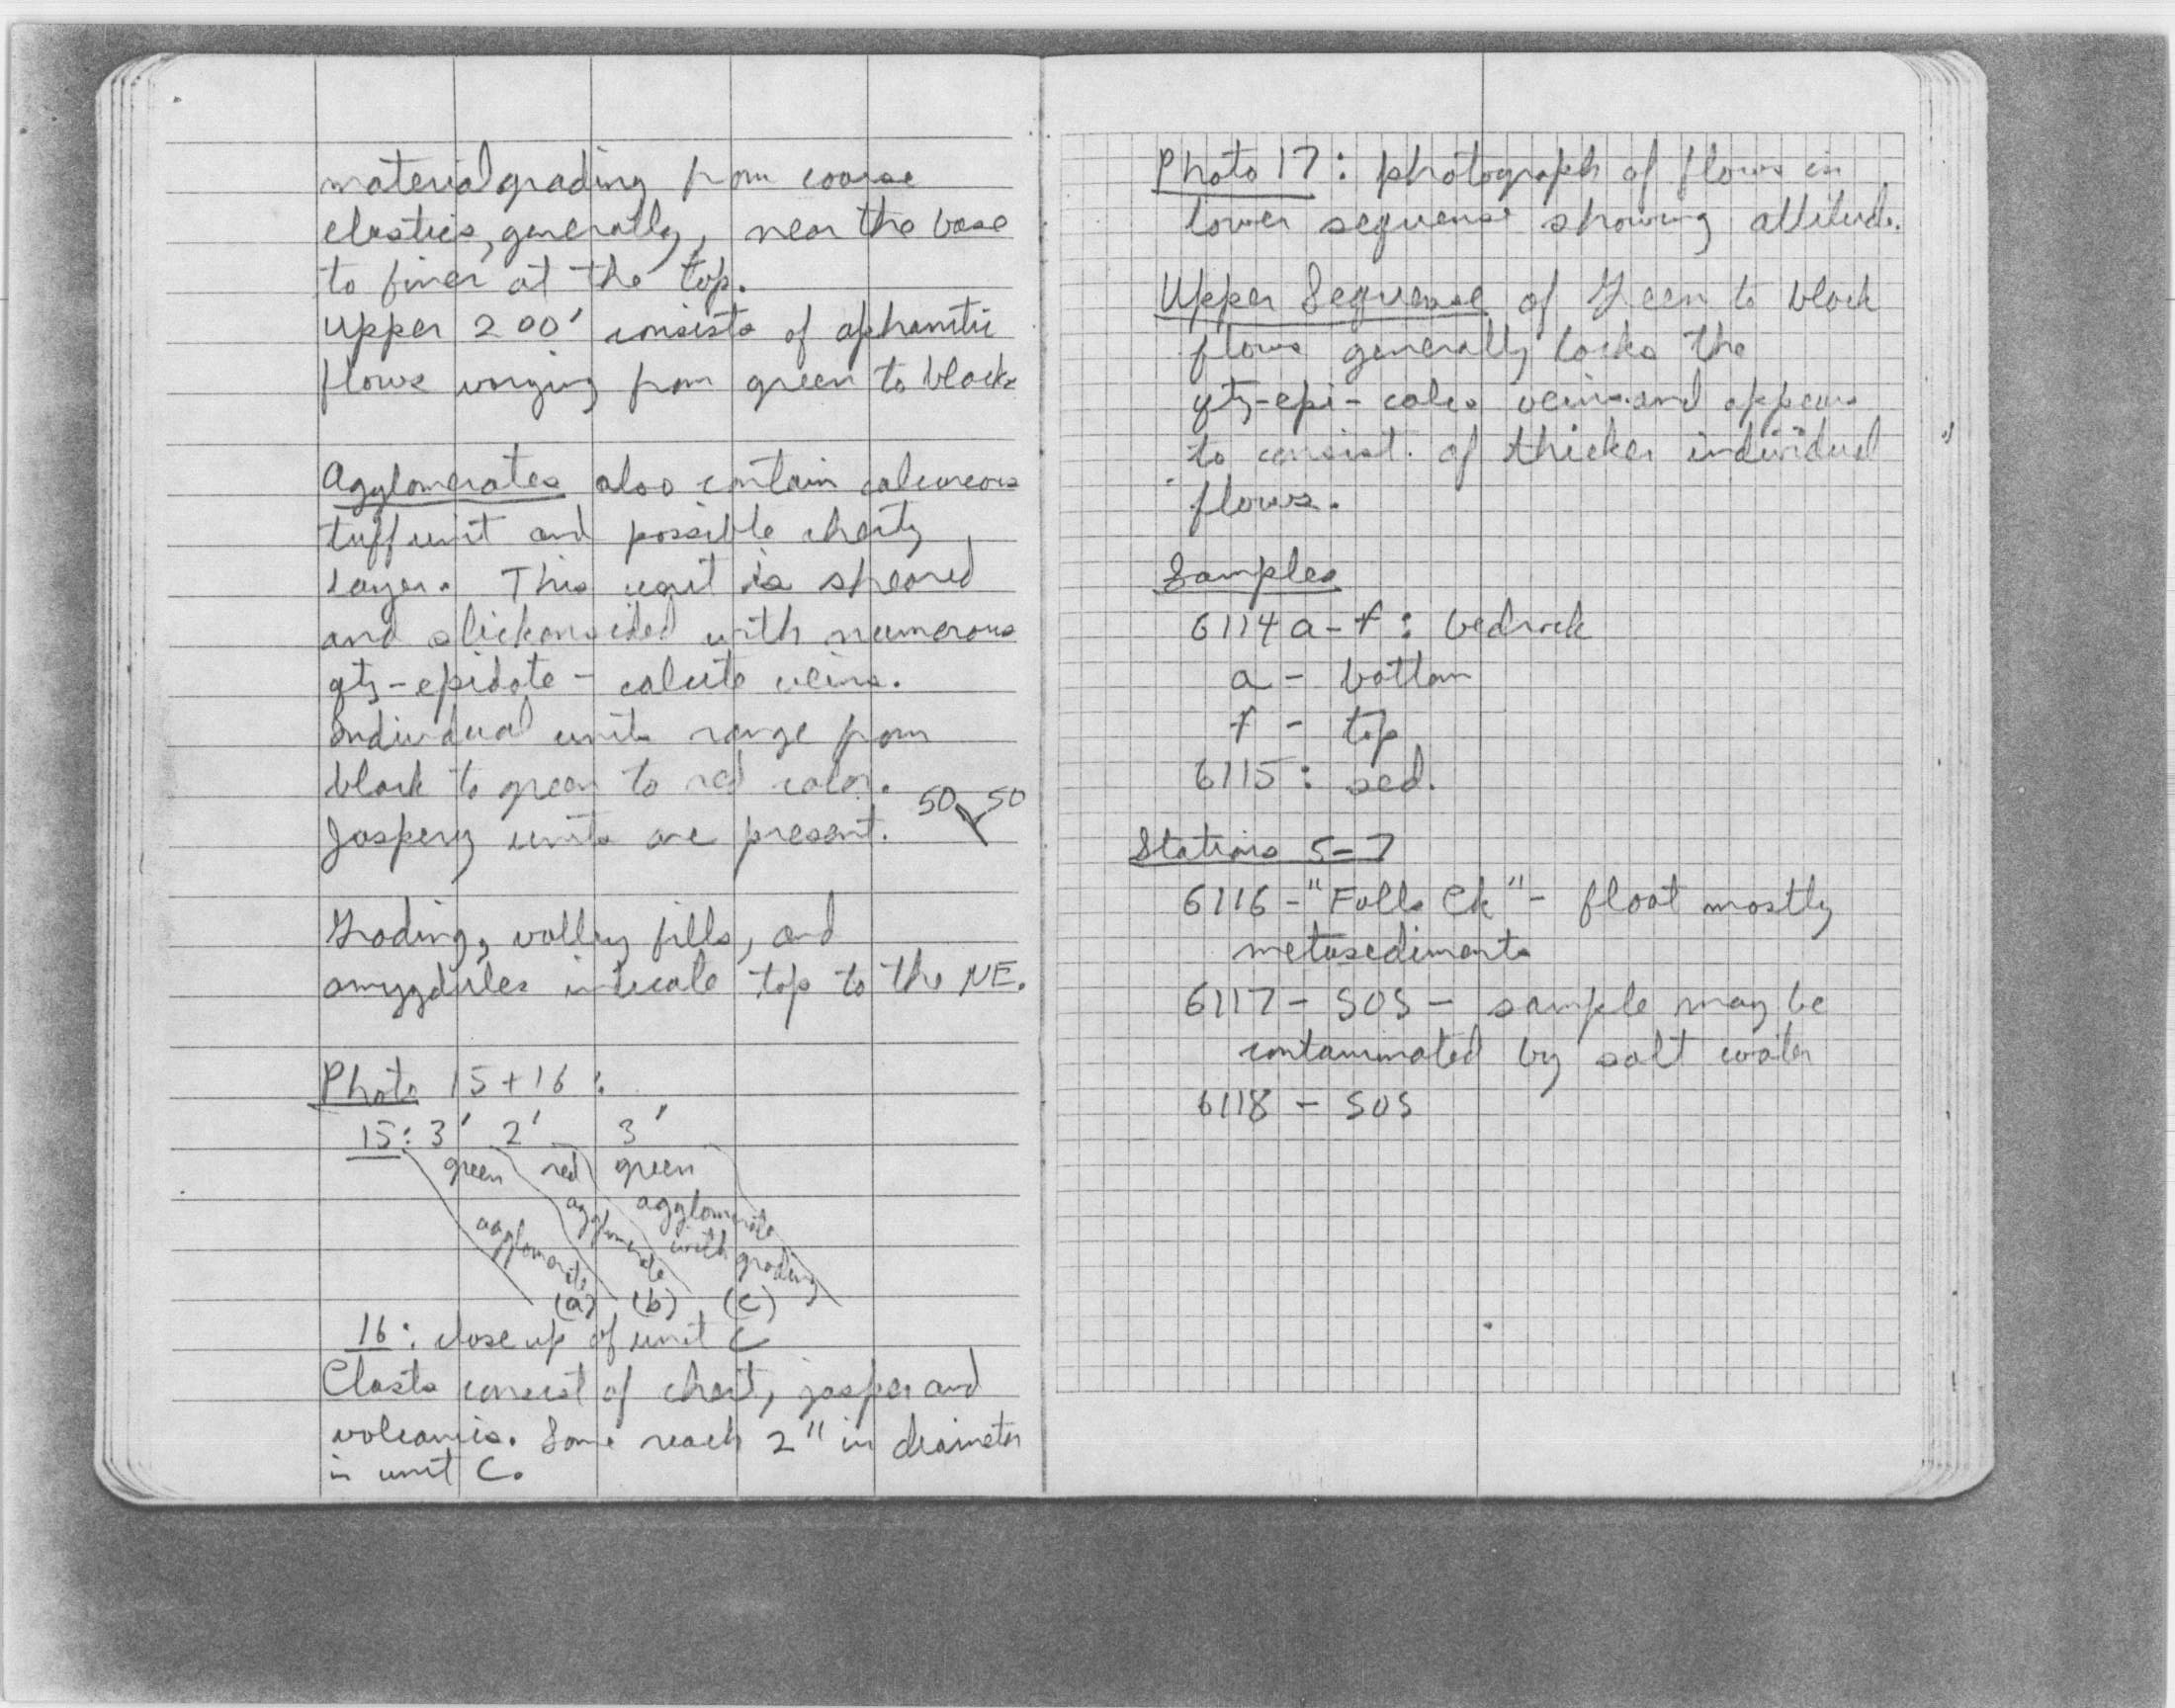 material grading from coarse
clastics, generally, near the base
to finer at the top.
Upper 200' consists of aphanitic
flows varying from green to black
Agglomerates also contain calcareous
tuff unit and possible cherty
layer. This unit is sheared
and slickensided with numerous
qtz-epidote-calcite veins.
Individual units range from
black to green to red color.
50 50
Jaspery units are present.
Grading, valley fills, and
amygdules indicate top to the NE.
Photo 15 + 16:
15: 3' 2' 3'
green red green
agglomerate agglomerate agglomerate
with grading
(a) (b) (c)
16: close up of unit C
Clasts consist of chert, jasper and
volcanics. Some reach 2" in diameter
in unit C.
Photo 17: photograph of flows in
lower sequence showing attitude.
Upper Sequence of Green to black
flows generally lacks the
qtz-epi-calc veins and appears
to consist of thicker individual
flows.
Samples
6114 a-f: bedrock
a - bottom
f - top
6115: sed.
Stations 5-7
6116 - "Falls Ck" - float mostly
metasediments
6117 - SOS - sample may be
contaminated by salt water
6118 - SOS